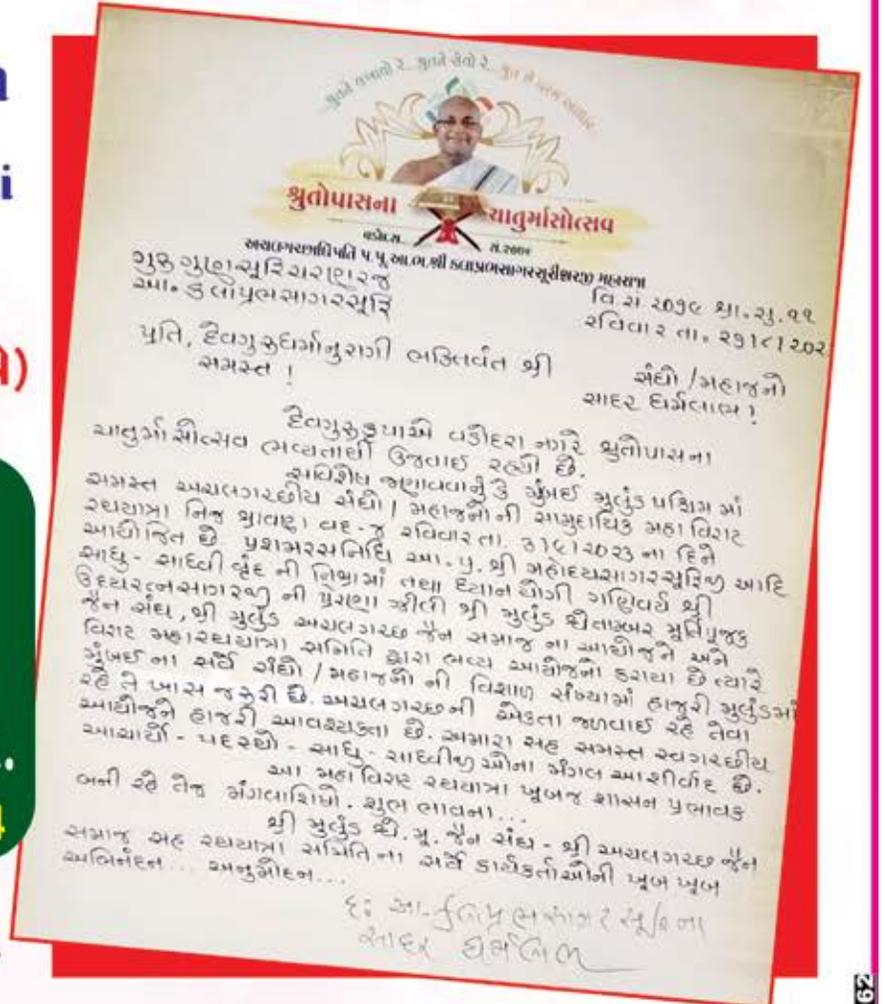 ...શ્રુતને વધાવો રે... શ્રુતને સેવો રે... શ્રુત છે પરમ આધાર...
શ્રુતોપાસના ચાતુર્માસોત્સવ
વડોદરા સં. ૨૦૭૯
અચલગચ્છાધિપતિ પ.પૂ.આ.ભ.શ્રી કલાપ્રભસાગરસૂરીશ્વરજી મહારાજા
ગુરુ ગુણસૂરિ ચરણરજ
આ. કલાપ્રભસાગરસૂરિ
વિ.સં ૨૦૭૯ શ્રા. સુ. ૧૧
રવિવાર તા. ૨૭/૮/૨૦૨
પ્રતિ, દેવગુરુધર્માનુરાગી ભક્તિવંત શ્રી
સમસ્ત ! સંઘો / મહાજનો
સાદર ધર્મલાભ !
દેવગુરુકૃપાએ વડોદરા નગરે શ્રુતોપાસના
ચાતુર્માસોત્સવ ભવ્યતાથી ઉજવાઈ રહ્યો છે.
સવિશેષ જણાવવાનું કે મુંબઈ મુલુંડ પશ્ચિમ માં
સમસ્ત અચલગચ્છીય સંઘો / મહાજનોની સામુદાયિક મહા વિરાટ
રથયાત્રા નિજ શ્રાવણ વદ-૪ રવિવાર તા. ૩/૯/૨૦૨૩ ના દિને
આયોજિત છે. પ્રશમરસનિધિ આ. પ્ર. શ્રી મહોદયસાગરસૂરિજી આદિ
સાધુ - સાધ્વી વૃંદ ની નિશ્રામાં તથા ધ્યાન યોગી ગણિવર્ય શ્રી
ઉદયરત્નસાગરજી ની પ્રેરણા ઝીલી શ્રી મુલુંડ શ્વેતામ્બર મૂર્તિપૂજક
જૈન સંઘ, શ્રી મુલુંડ અચલગચ્છ જૈન સમાજ ના આયોજને અને
વિરાટ મહારથયાત્રા સમિતિ દ્વારા ભવ્ય આયોજનો કરાયા છે ત્યારે
મુંબઈ ના સર્વે સંઘો / મહાજનો ની વિશાળ સંખ્યામાં હાજરી મુલુંડમાં
રહે તે ખાસ જરૂરી છે. અચલગચ્છની એકતા જળવાઈ રહે તેવા
આયોજને હાજરી આવશ્યકતા છે. અમારા સહ સમસ્ત સ્વગચ્છીય
આચાર્યો - પદસ્થો - સાધુ - સાધ્વીજીઓના મંગલ આશીર્વાદ છે.
આ મહા વિરાટ રથયાત્રા ખૂબજ શાસન પ્રભાવક
બની રહે તેજ મંગલાશિષો. શુભ ભાવના...
શ્રી મુલુંડ શ્વે. મૂ. જૈન સંઘ - શ્રી અચલગચ્છ જૈન
સમાજ સહ રથયાત્રા સમિતિ ના સર્વે કાર્યકર્તાઓની ખૂબ ખૂબ
અભિનંદન... અનુમોદન...
દ: આ. કલાપ્રભસાગરસૂરિ ના
સાદર ધર્મલાભ
62